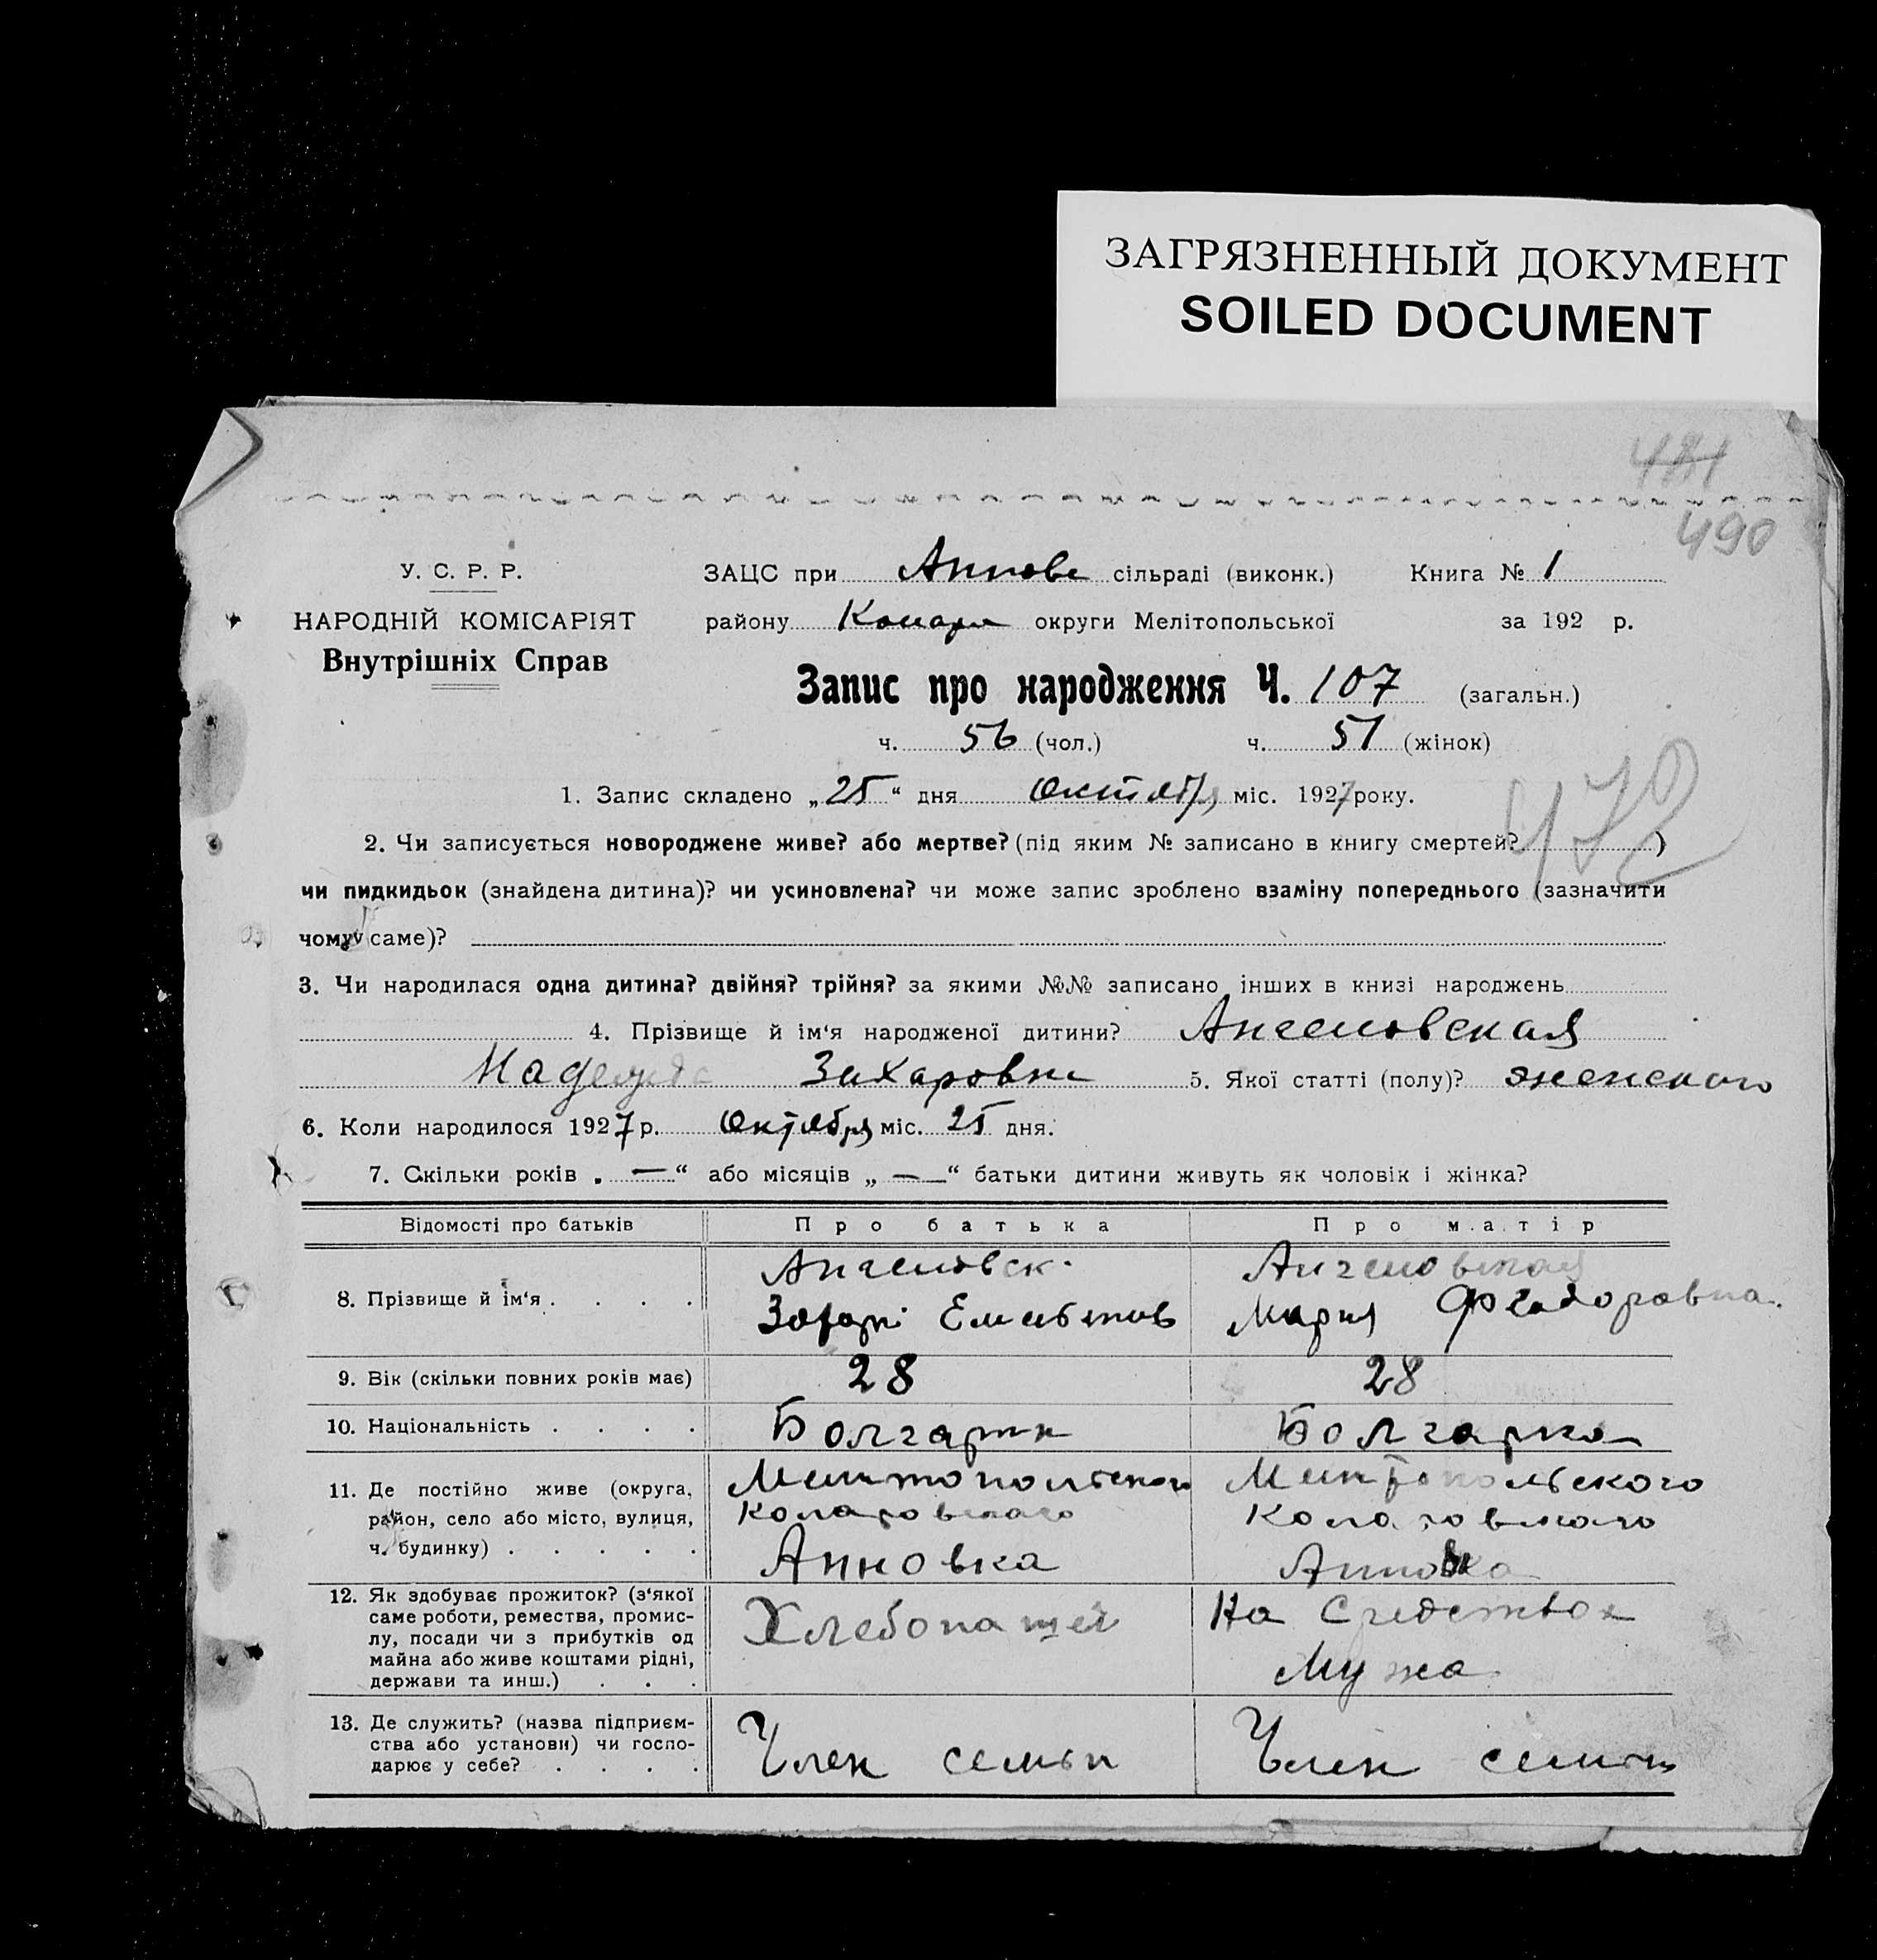 ЗАГРЯЗНЕННЫЙ ДОКУМЕНТ
SOILED DOCUMENT
481
490
У. С. Р. Р.
НАРОДНІЙ КОМІСАРІЯТ
Внутрішніх Справ
ЗАЦС при Аннове сільраді (виконк.) Книга № 1
району округи Мелітопольської за 192 р.
Запис про народження Ч. 107 (загальн.)
ч. 56 (чол.) ч. 51 (жінок)
1. Запис складено „25“ дня Октября міс. 1927 року.
472
2. Чи записується новороджене живе? або мертве? (під яким № записано в книгу смертей? )
чи пидкидьок (знайдена дитина)? чи усиновлена? чи може запис зроблено взаміну попереднього (зазначити
чому саме)?
3. Чи народилася одна дитина? двійня? трійня? за якими №№ записано інших в книзі народжень
4. Прізвище й ім‘я народженої дитини? Ангеловская
Надежда Захаровна 5. Якої статті (полу)? женского
6. Коли народилося 1927 р. Октября міс. 25 дня.
7. Скільки років „ — “ або місяців „ — “ батьки дитини живуть як чоловік і жінка?
Відомості про батьків Про батька Про матір
8. Прізвище й ім‘я . . . .
Ангеловск.
Захарі
Ангеловская
Мария Феодоровна.
9. Вік (скільки повних років має) 28 28
10. Національність . . . . Болгарин Болгарка
11. Де постійно живе (округа,
район, село або місто, вулиця,
ч. будинку) . . . . .
Мелитопольского
Коларовского
Анновка
Мелитопольского
Коларовского
Анновка
12. Як здобуває прожиток? (з‘якої
саме роботи, ремества, промис-
лу, посади чи з прибутків од
майна або живе коштами рідні,
держави та инш.) . . .
Хлебопашей
На Средствах
Мужа
13. Де служить? (назва підприєм-
ства або установи) чи госпо-
дарює у себе? . . . .
Член семьи
Член семьи